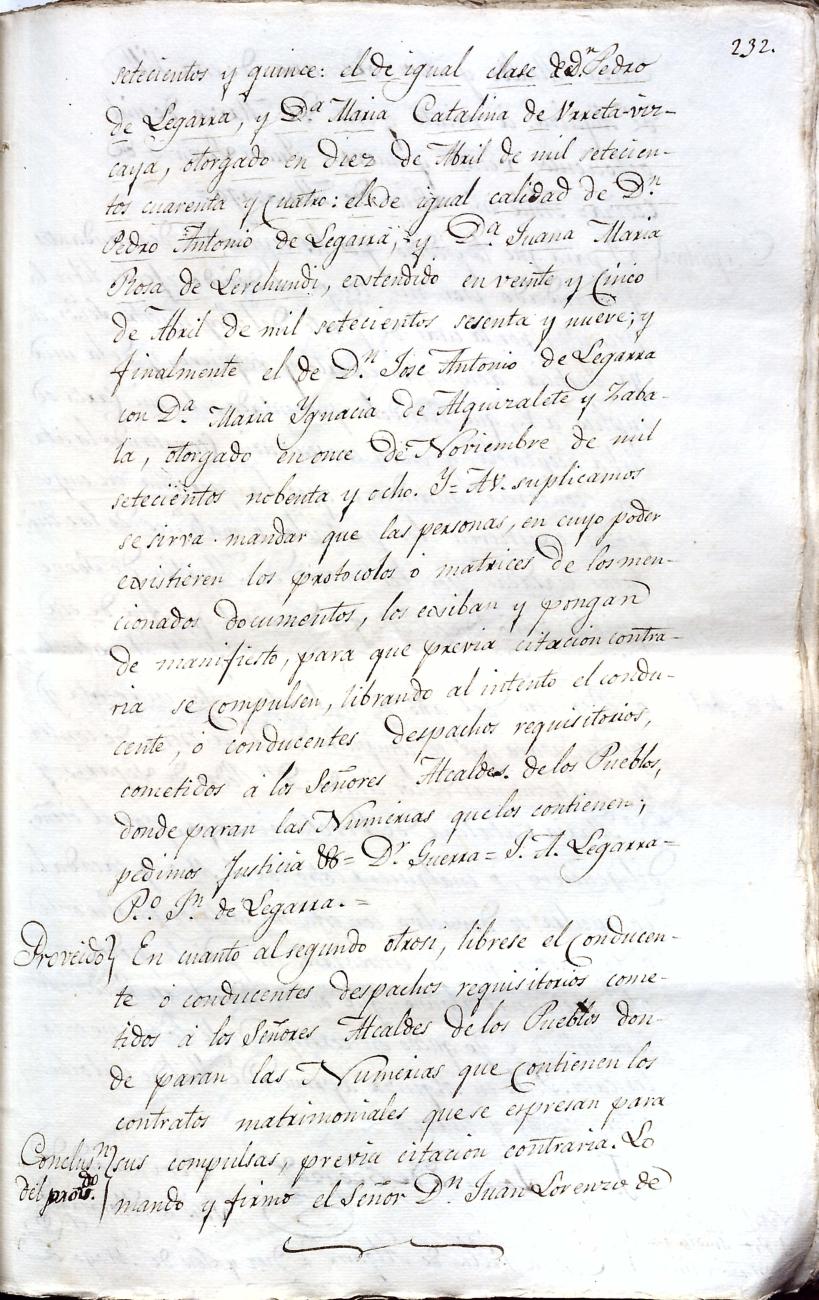 232.
setecientos y quince: el de igual clase de Dn Pedro
de Legarra, y Da Maria Catalina de Vrreta-viz-
caya, otorgado en diez de Abril de mil setecien-
tos cuarenta y cuatro: el de igual calidad de Dn
Pedro Antonio de Legarra, y Da Juana Maria
Rosa de Lerchundi, extendido en veinte y cinco
de Abril de mil setecientos sesenta y nueve; y
finalmente el de Dn Jose Antonio de Legarra
con Da Maria Ygnacia de Alquizalete y Zaba-
la, otorgado en once de Noviembre de mil
setecientos nobenta y ocho. Y= A V. suplicamos
se sirva mandar que las personas, en cuyo poder
existieren los protocolos ó matrices de los men-
cionados documentos, los exiban y pongan
de manifiesto, para que previa citacion contra-
ria se compulsen, librando al intento el condu-
cente, ó conducentes despachos requisitorios,
cometidos á los Señores Alcaldes de los Pueblos,
donde paran las Numerias que los contienen;
pedimos Justicia &= Dr Guerra= J. A. Legarra=
P.o Jn de Legarra.=
Proveido} En cuanto al segundo otrosi, librese el conducen-
te ó conducentes despachos requisitorios come-
tidos á los Señores Alcaldes de los Pueblos don-
de paran las Numerias que contienen los
contratos matrimoniales que se espresan para
Conclusn} sus compulsas, previa citacion contraria. Lo
del protdo.} mando y firmo el Señor Dn Juan Lorenzo de